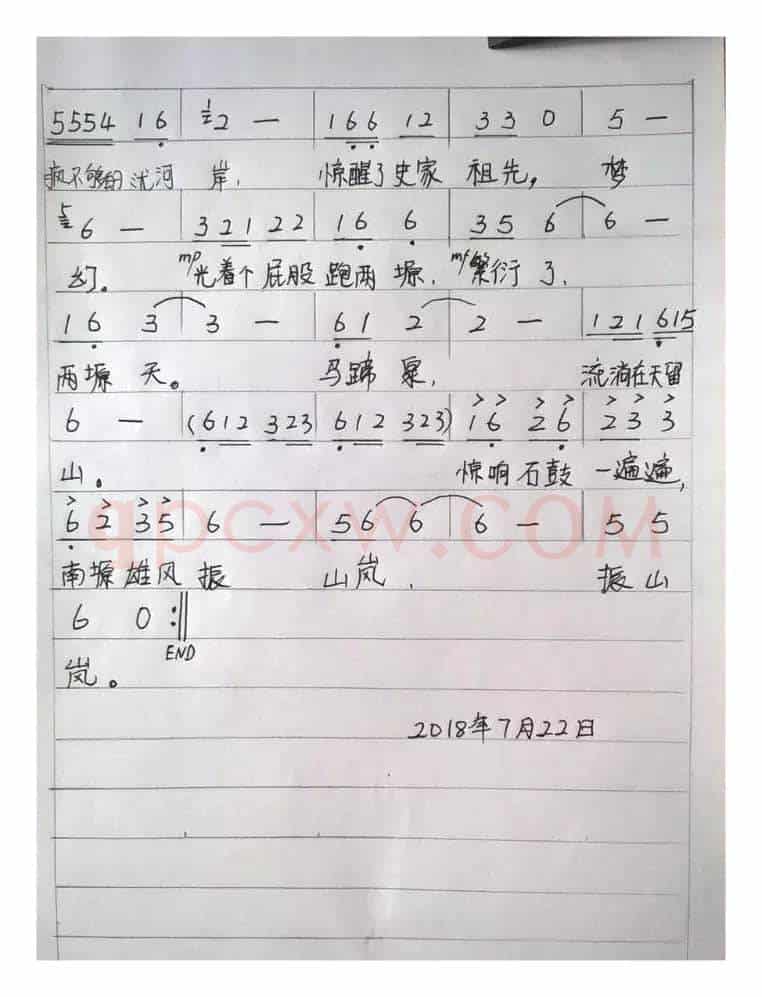 5554 16 | 1 2 — | 166 12 | 33 0 | 5 —
疯不够的沋河 岸， 惊醒了史家 祖先， 梦
5 6 — | 321 22 | 16 6 | 35 6 | 6 —
幻。 mp光着个屁股 跑两塬， mf繁衍了，
16 3 | 3 — | 61 2 | 2 — | 121 615
两塬 天。 马蹄泉， 流淌在天留
6 — | (612 323 | 612 323) | 16 26 | 23 3
山。 惊响石鼓 一遍遍，
62 35 | 6 — | 56 6 | 6 — | 5 5
南塬雄风 振 山岚， 振山
6 0 :||
END
岚。
2018年7月22日
qpcxw.COM